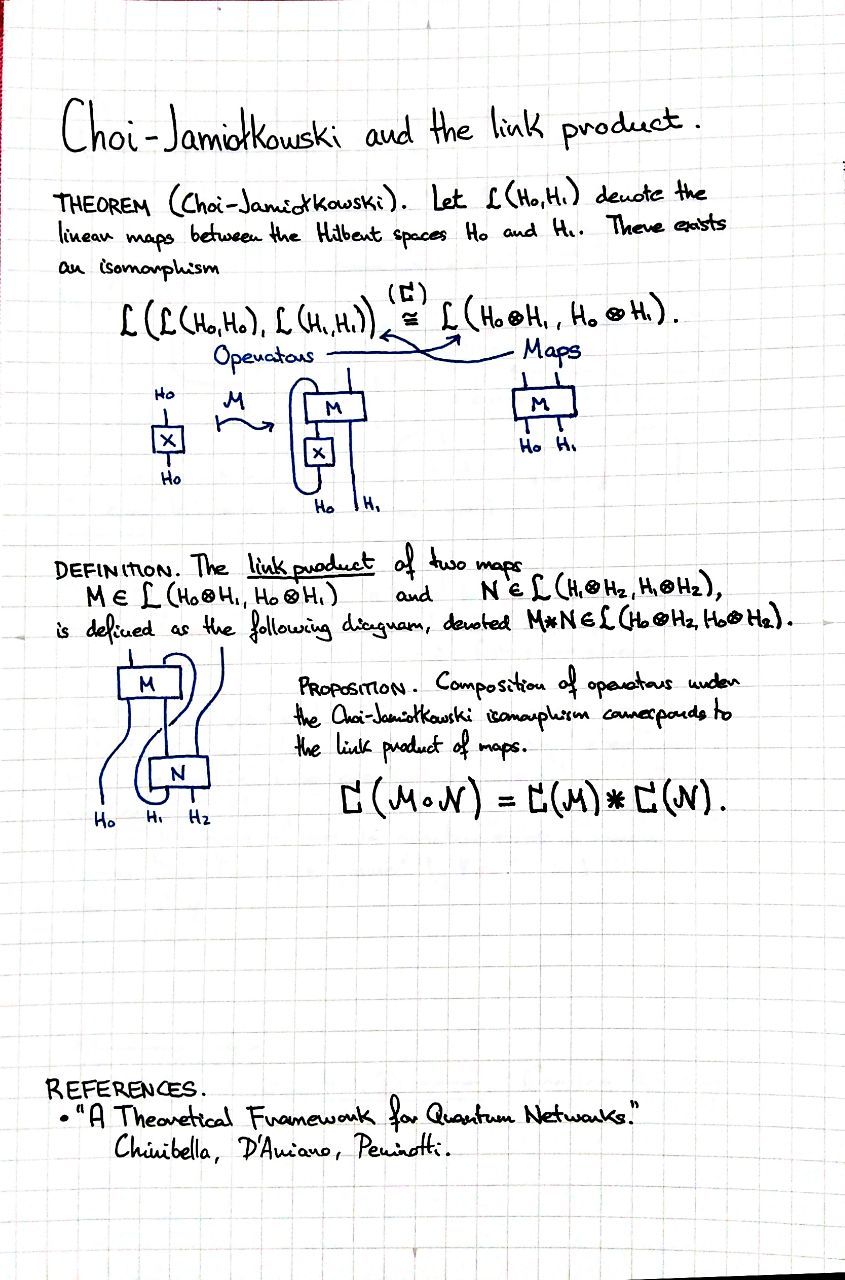 Choi-Jamiołkowski and the link product.
THEOREM (Choi-Jamiołkowski). Let ℒ(H₀,H₁) denote the
linear maps between the Hilbert spaces H₀ and H₁. There exists
an isomorphism
(ℭ)
ℒ(ℒ(H₀,H₀), ℒ(H₁,H₁)) ≅ ℒ(H₀⊗H₁, H₀⊗H₁).
Operators Maps
H₀ ℳ M M
X X H₀ H₁
H₀
H₀ H₁
DEFINITION. The link product of two maps
M ∈ ℒ(H₀⊗H₁, H₀⊗H₁) and N ∈ ℒ(H₁⊗H₂, H₁⊗H₂),
is defined as the following diagram, denoted M*N∈ℒ(H₀⊗H₂, H₀⊗H₂).
M
N
H₀ H₁ H₂
PROPOSITION. Composition of operators under
the Choi-Jamiołkowski isomorphism corresponds to
the link product of maps.
ℭ(ℳ∘𝒩) = ℭ(ℳ) * ℭ(𝒩).
REFERENCES.
• "A Theoretical Framework for Quantum Networks."
Chiribella, D'Ariano, Perinotti.